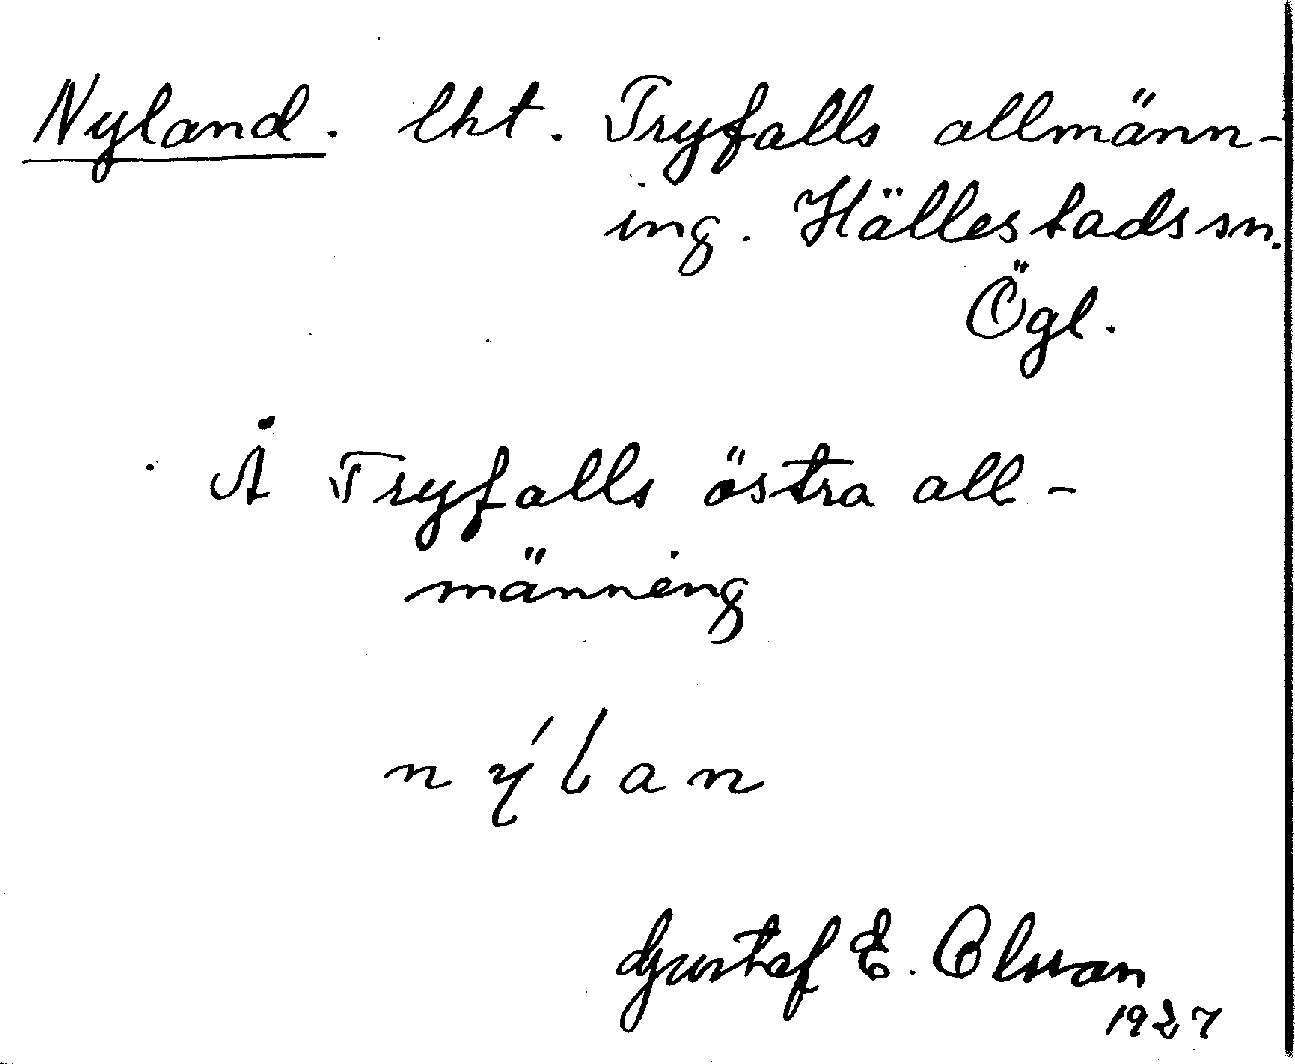 Nyland. lht. Tryfalls allmänn-
ing. Hällestads sn.
Ögl.
Å Tryfalls östra all-
männing
nýlan
Gustaf E. Olsson
1927